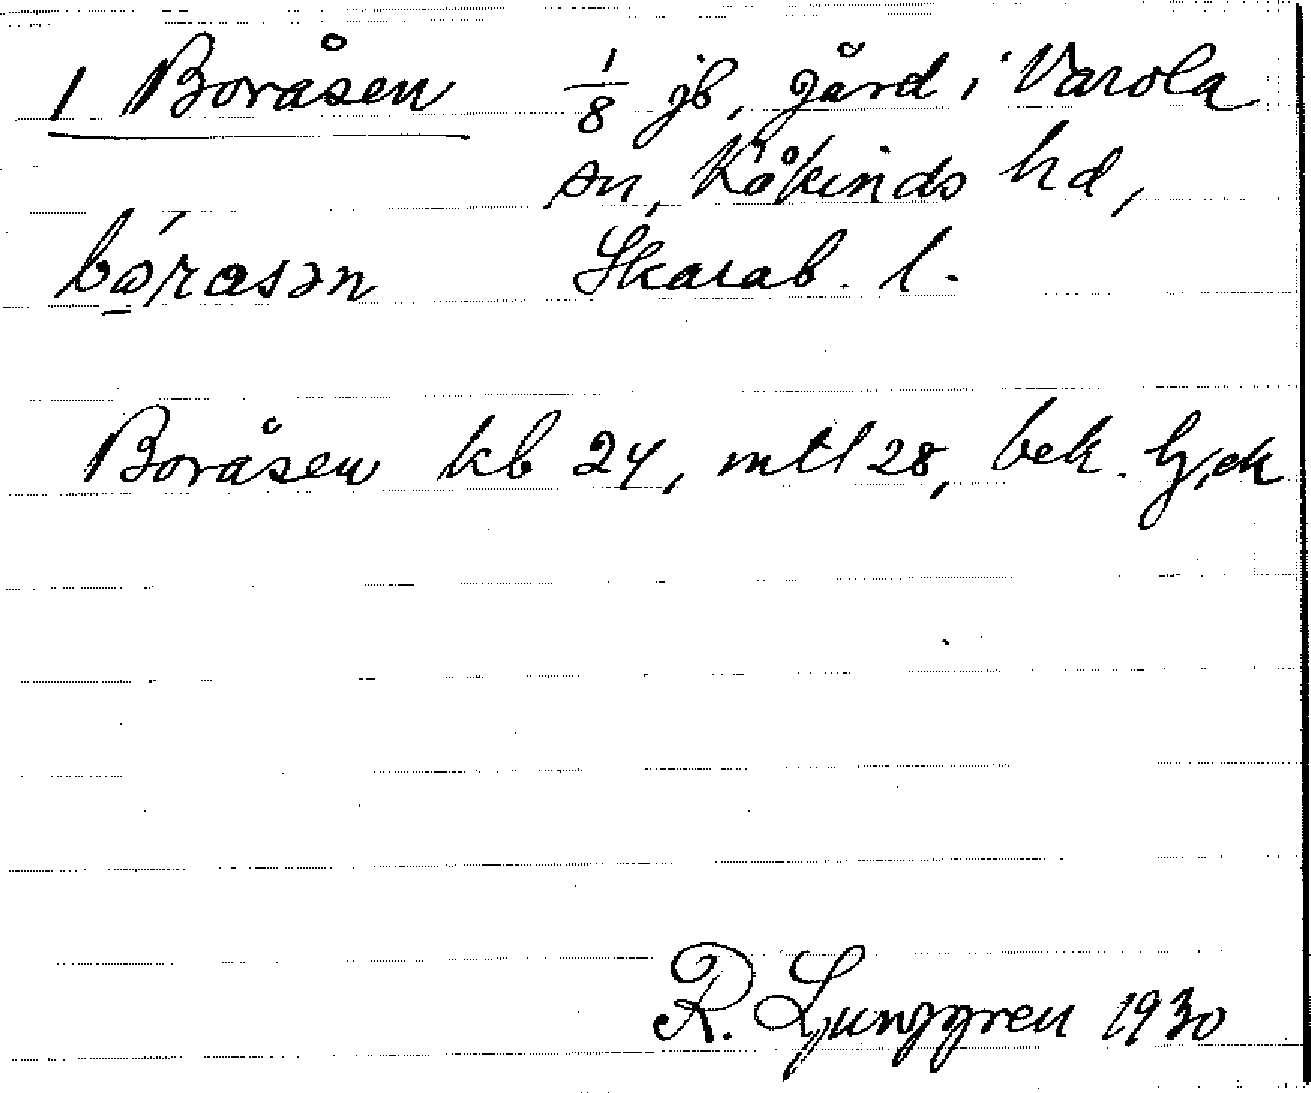 1 Boråsen 1/8 jb, gård i Varola
sn, Kåkinds hd,
bǿrasən Skarab. l.
Boråsen kb 24, mtl 28, bek. h,ek
R. Ljunggren 1930